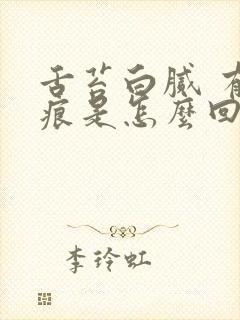 舌苔白腻 有
痕是怎麼回
李玲虹